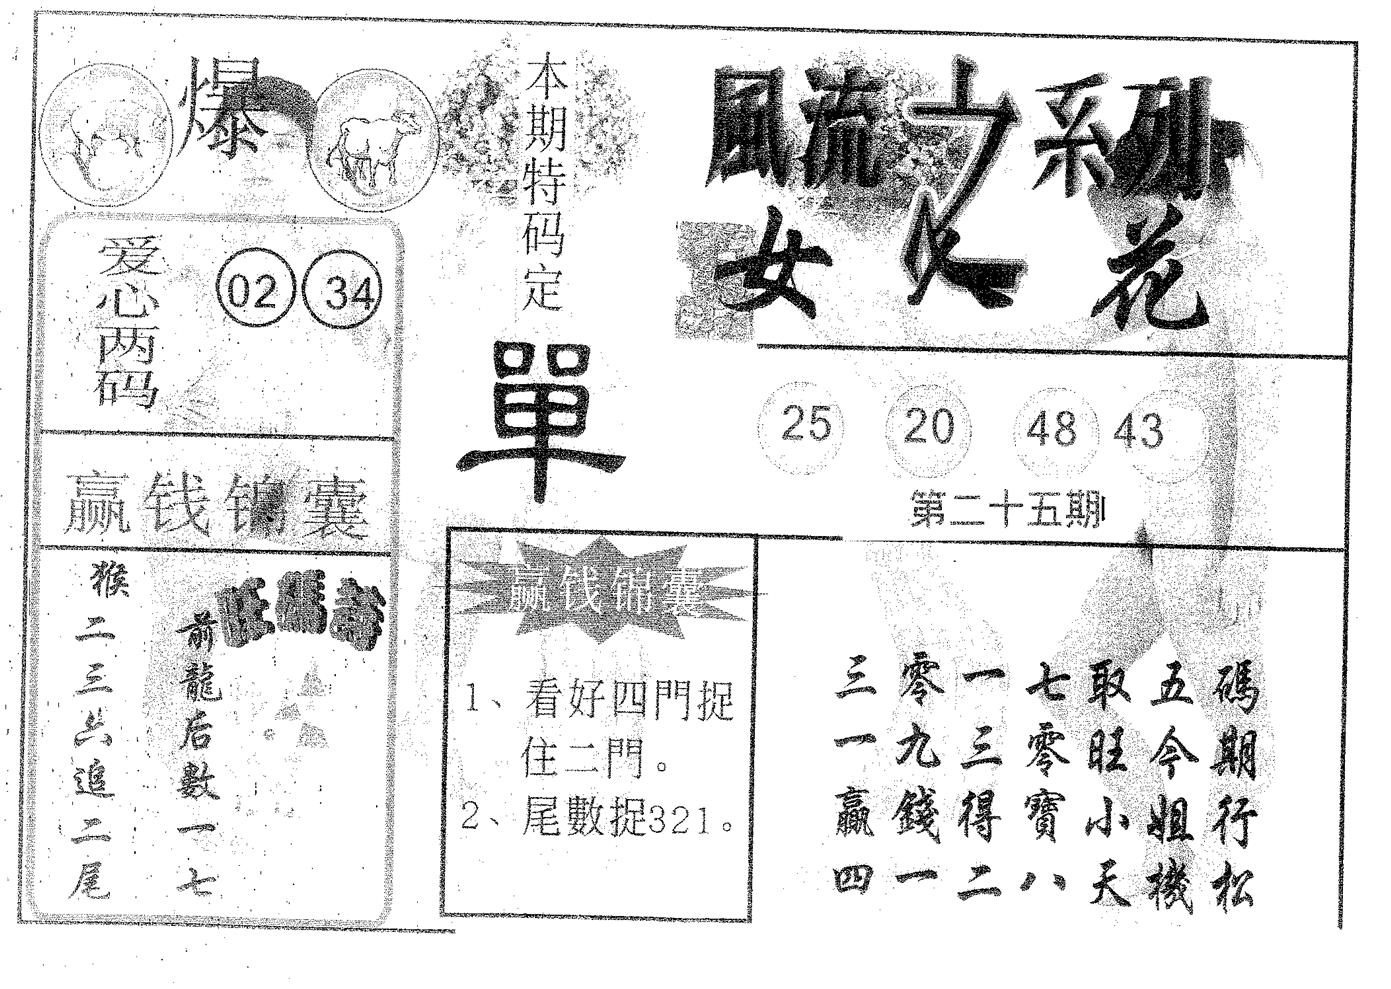 爆
爱心两码
02 34
赢钱锦囊
猴二三六追二尾
前龍后數一七
旺碼詩
本期特码定
單
赢钱锦囊
1、看好四門捉
住二門。
2、尾數捉321。
風流之系列
女人花
25 20 48 43
第二十五期
三零一七取五碼
一九三零旺今期
贏錢得寶小姐行
四一二八天機松